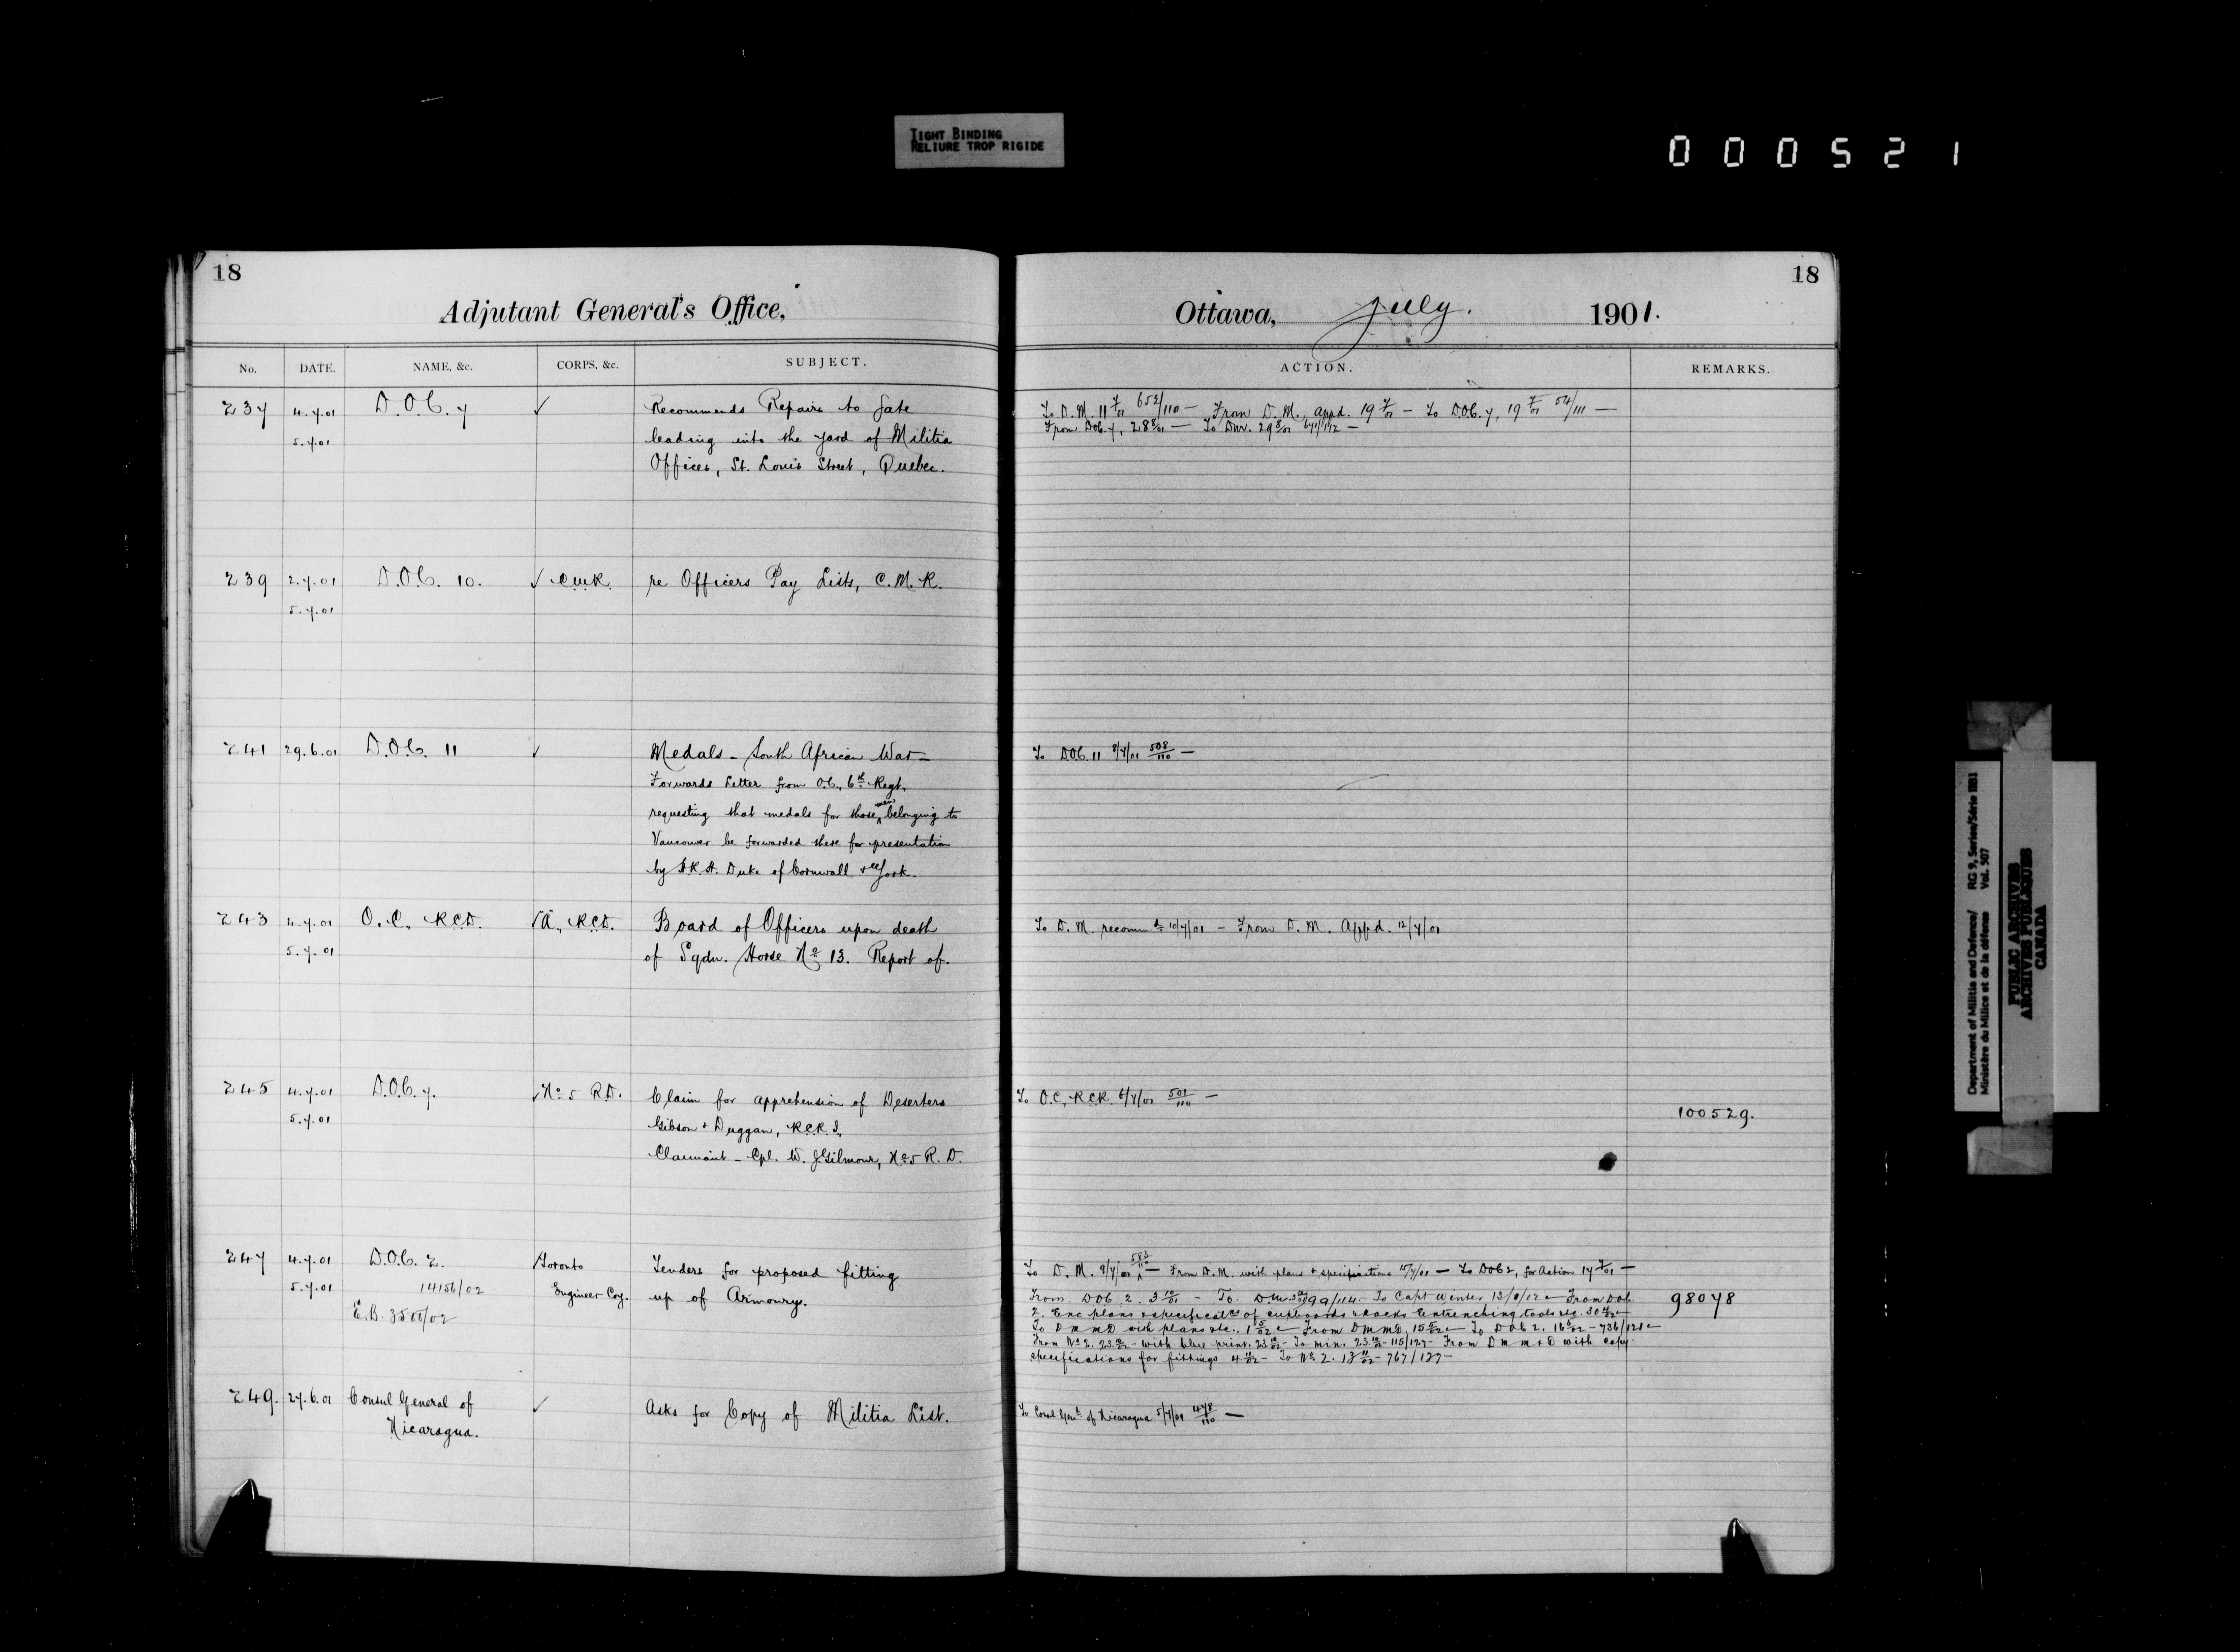 TIGHT BINDING
RELIURE TROP RIGIDE
000521
18
Adjutant General's Office,
No. DATE. NAME, &c. CORPS, &c. SUBJECT.
237 4.7.01 D.O.C. 7 ✓ Recommends Repairs to Gate
5.7.01 leading into the yard of Militia
Offices, St. Louis Street, Quebec.
239 2.7.01 D.O.C. 10. ✓ C.M.R. re Officers Pay Lists, C.M.R.
5.7.01
241 29.6.01 D.O.C. 11 ✓ Medals - South African War -
Forwards Letter from O.C., 6th Regt.
requesting that medals for those men belonging to
Vancouver be forwarded there for presentation
by H.R.H. Duke of Cornwall & York.
243 4.7.01 O.C., R.C.D. ✓ "A", R.C.D. Board of Officers upon death
5.7.01 of Sqdn. Horse No 13. Report of.
245 4.7.01 D.O.C. 7. ✓ No 5 R.D. Claim for apprehension of Deserters
5.7.01 Gibson & Duggan, R.C.R.I.,
Claimant - Cpl. W. J. Gilmour, No 5 R.D.
247 4.7.01 D.O.C. 2. ✓ Toronto Tenders for proposed fitting
5.7.01 14156/02 Engineer Coy. up of Armoury.
E.B.
249. 27.6.01 Consul General of ✓ Asks for Copy of Militia List.
Nicaragua.
18
Ottawa, July. 1901.
ACTION. REMARKS.
To D.M. 11 7/01 652/110 — From D.M., appd. 19 7/01 — To D.O.C. 7, 19 7/01 54/111 —
From D.O.C. 7, 28 8/01 — To 29 8/01 —
To D.O.C. 11 8/7/01 508/110 —
To D.M. recommd 10/7/01 — From D.M. Appd. 12/7/01
To O.C., R.C.R. 6/7/01 501/110 —
100529.
To D.M. 9/7/01 — From D.M. with plans & specifications — To D.O.C. 2, for Action 17 7/01 —
From D.O.C. 2. 3 10/01 — To. D.M. 99/114. To Capt Winter — From D.O.C.
2. Enc plans & specificatns of cupboards & racks Entrenching tools etc. 30 4/02 —
To D M M D with plans etc., 1 5/02 — From D M M D. 15 5/02 — To D.O.C. 2. 16 5/02 — 736/121 —
From No 2. 23 10/02 — with blue print. 23 10/02 — To min. 23 10/02 — 115/127 — From D M M & D with copy
specifications for fittings 4 11/02 — To No 2. 13 11/02 — 767/127 —
98078
To Consl Genl of Nicaragua 5/7/01 478/110 —
Department of Militia and Defence/ RG 9, Series/Série IIB1
Ministère du Milice et de la défense Vol. 507
PUBLIC ARCHIVES
ARCHIVES PUBLIQUES
CANADA